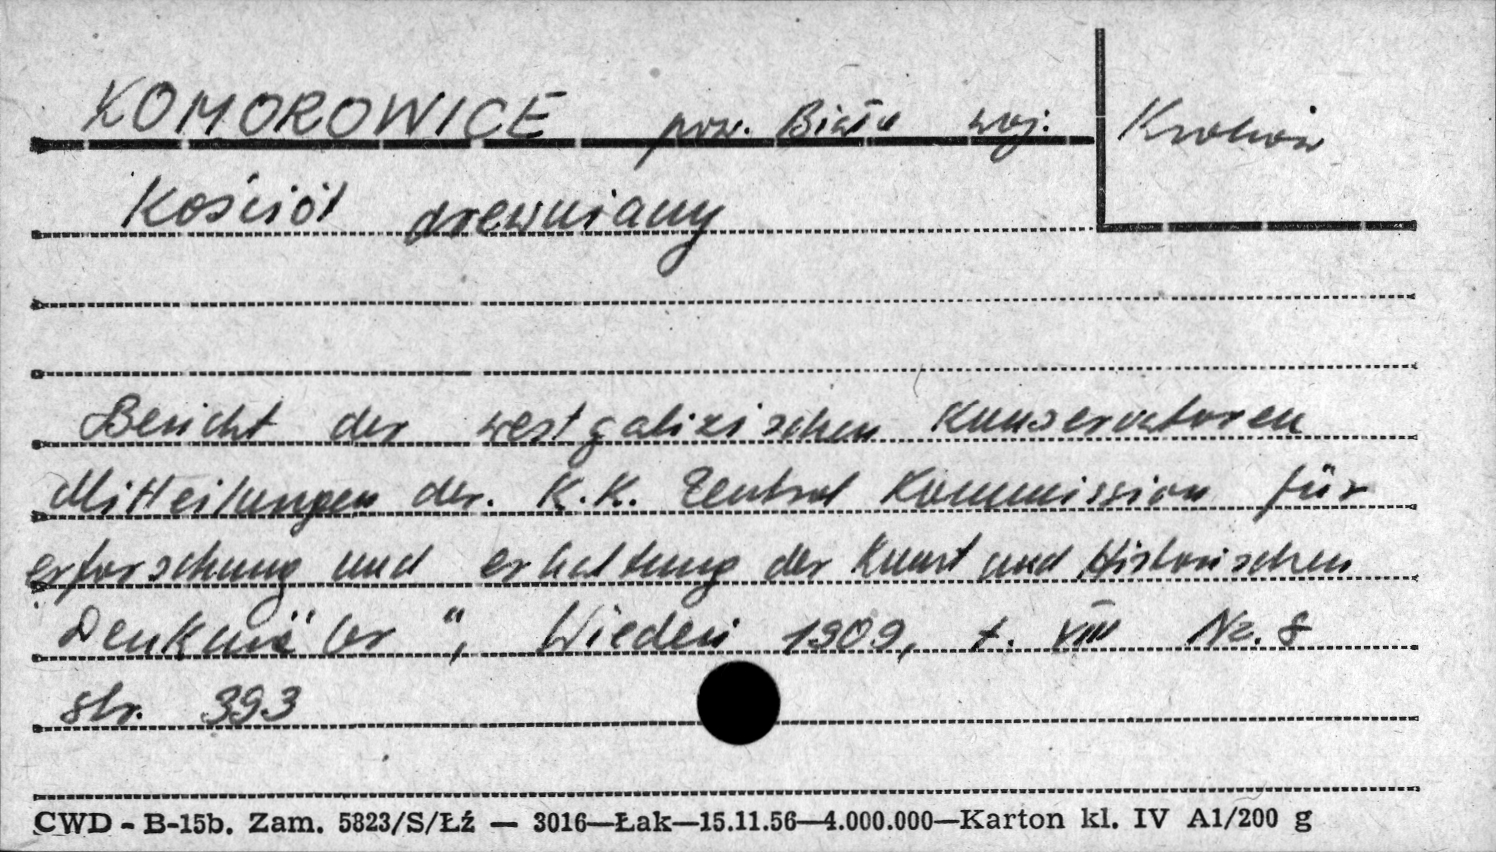 KOMOROWICE pow. Biała woj. Kraków
Kościół drewniany
Bericht der westgalizischen Kunservatoren
Mitteilungen der. K.K. Zentral Kommission für
erforschung und erhaltung der Kunst und Historischen
Denkmäler", Wiedeń 1909, t. VIII Nr. 8
str. 393
CWD - B-15b. Zam. 5823/S/Łź — 3016—Łak—15.11.56—4.000.000—Karton kl. IV A1/200 g